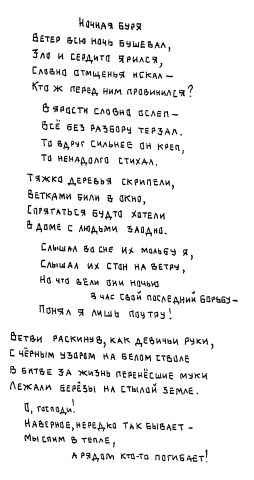 Ночная буря
Ветер всю ночь бушевал,
Зло и сердито ярился,
Словно отмщенья искал –
Кто ж перед ним провинился?
В ярости словно ослеп –
Всё без разбору терзал.
То вдруг сильнее он креп,
То ненадолго стихал.
Тяжко деревья скрипели,
Ветками били в окно,
Спрятаться будто хотели
В доме с людьми заодно.
Слышал во сне их мольбу я,
Слышал их стон на ветру,
Но что вели они ночью
В час свой последний борьбу –
Понял я лишь поутру!
Ветви раскинув, как девичьи руки,
С чёрным узором на белом стволе
В битве за жизнь перенёсшие муки
Лежали берёзы на стылой земле.
О, господи!
Наверное, нередко так бывает –
Мы спим в тепле,
А рядом кто-то погибает!